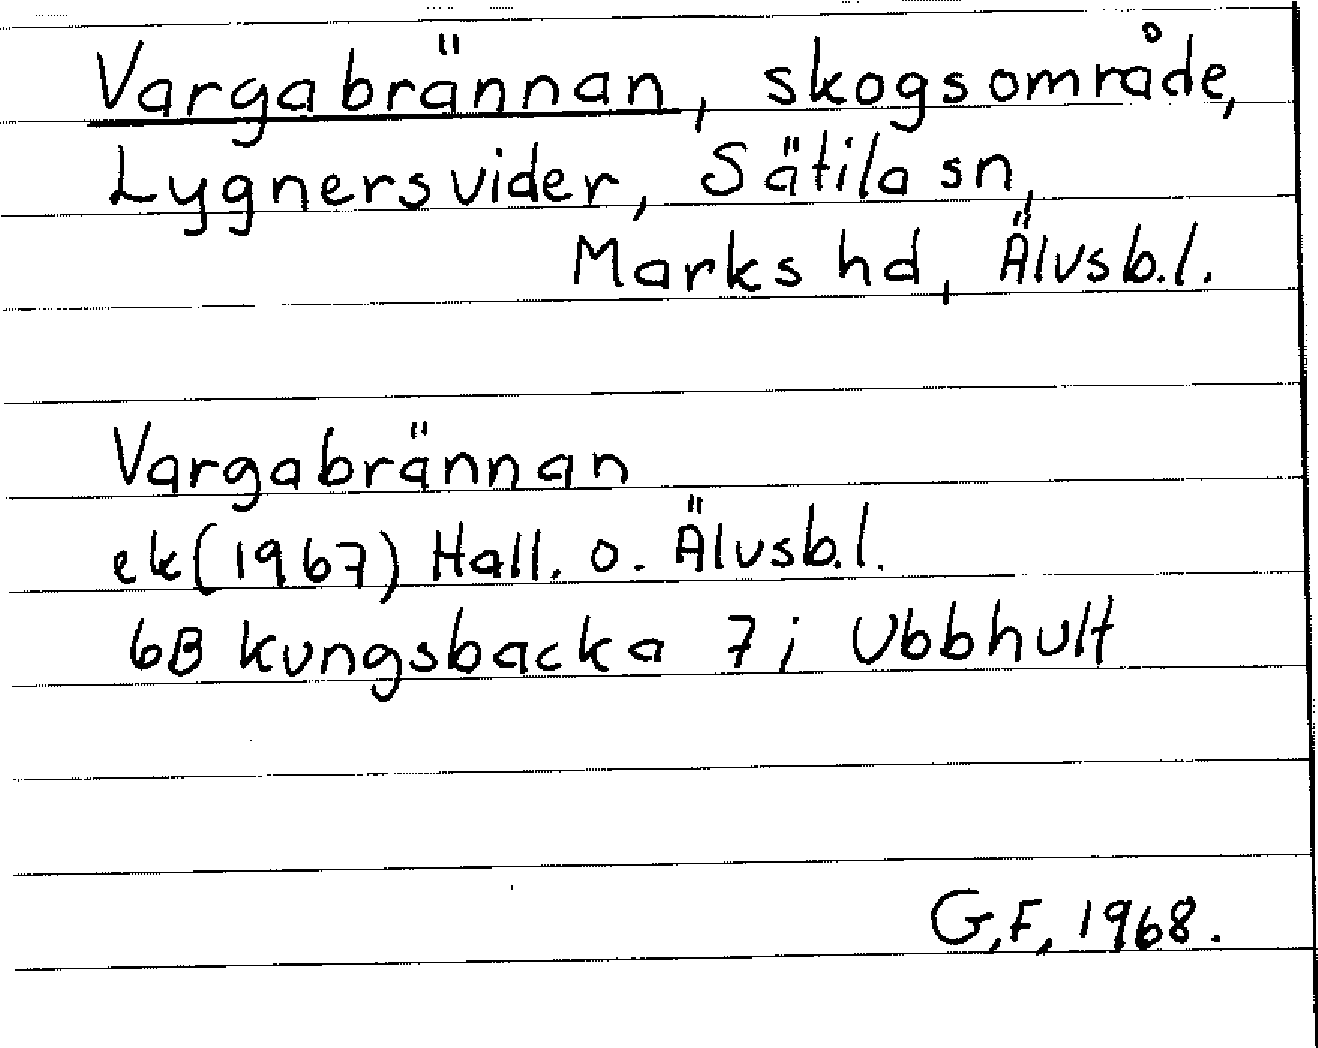 Vargabrännan, skogsområde,
Lygnersvider, Sätila sn,
Marks hd, Älvsb.l.
Vargabrännan
ek(1967) Hall. o. Älvsb.l.
6B kungsbacka 7j Ubbhult
G,F, 1968.